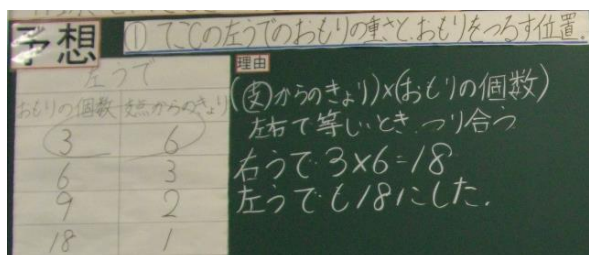 予想
①てこの左うでのおもりの重さと、おもりをつるす位置。
左うで
おもりの個数 支点からのきょり
3 6
6 3
9 2
18 1
理由
(支からのきょり)×(おもりの個数)
左右で等しいとき、つり合う
右うで 3×6=18
左うでも18にした。